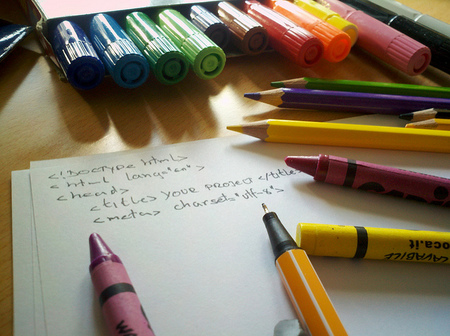 <!DOCTYPE html>
<html lang="en">
<head>
<title> YOUR PROJECT </title>
<meta> charset="utf-8">
LAVABILE
oca.it